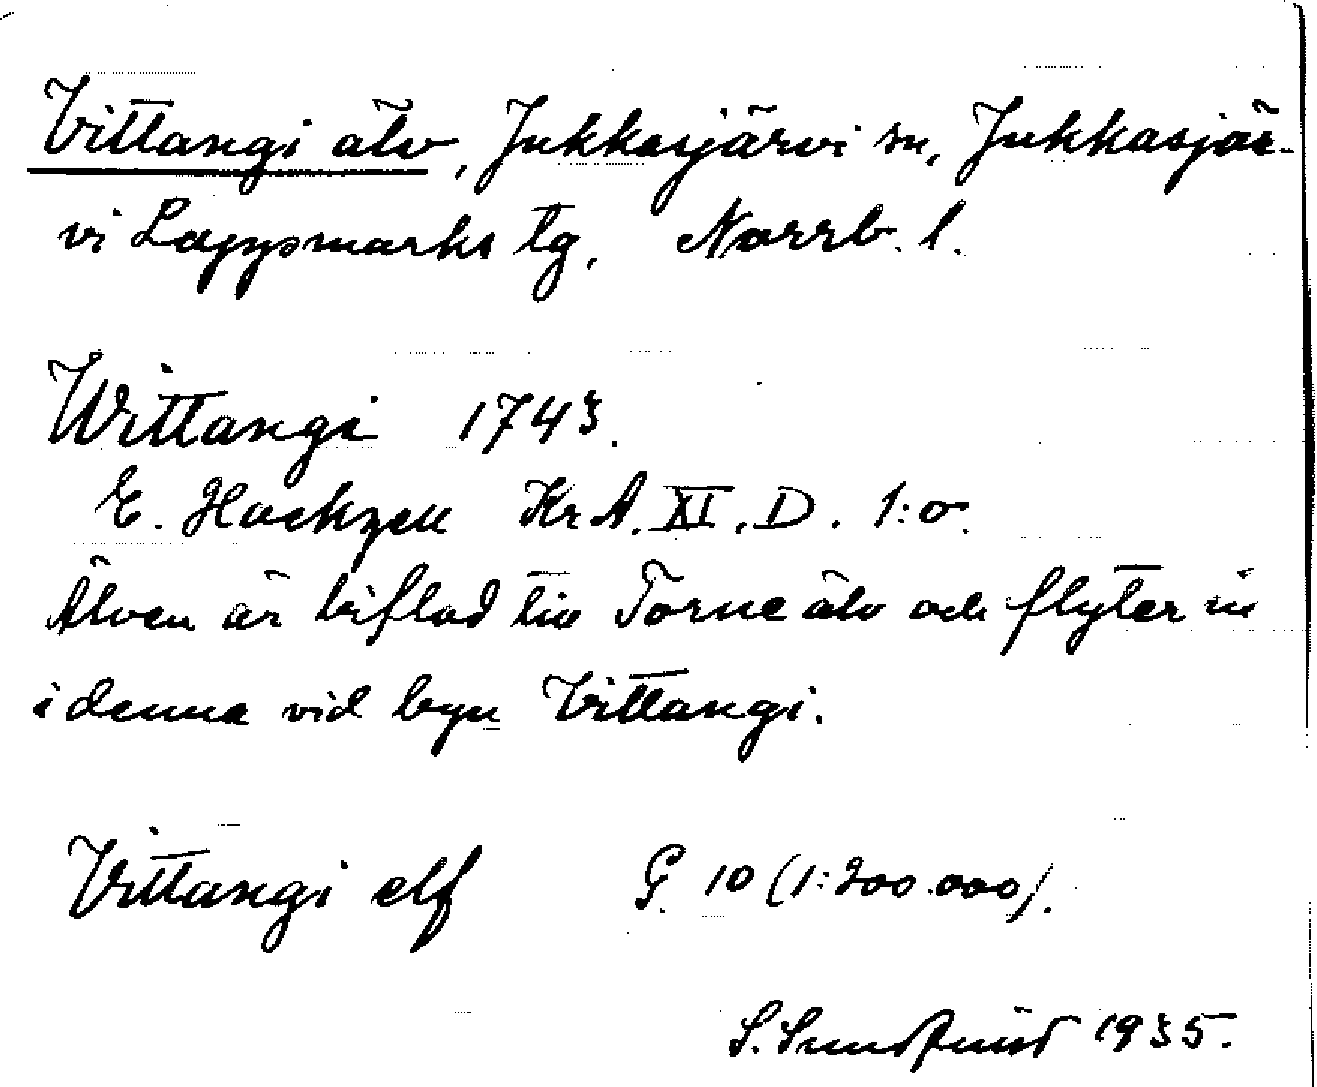 Vittangi älv, Jukkasjärvi sn, Jukkasjär-
vi Lappmarks tg, Norrb. l.
Wittangi 1743.
E. Hackzell KrA. XI. D. 1:o.
Älven är biflod till Torne älv och flyter in
i denna vid byn Vittangi.
Vittangi elf G. 10 (1:200.000).
S. Sundqvist 1935.